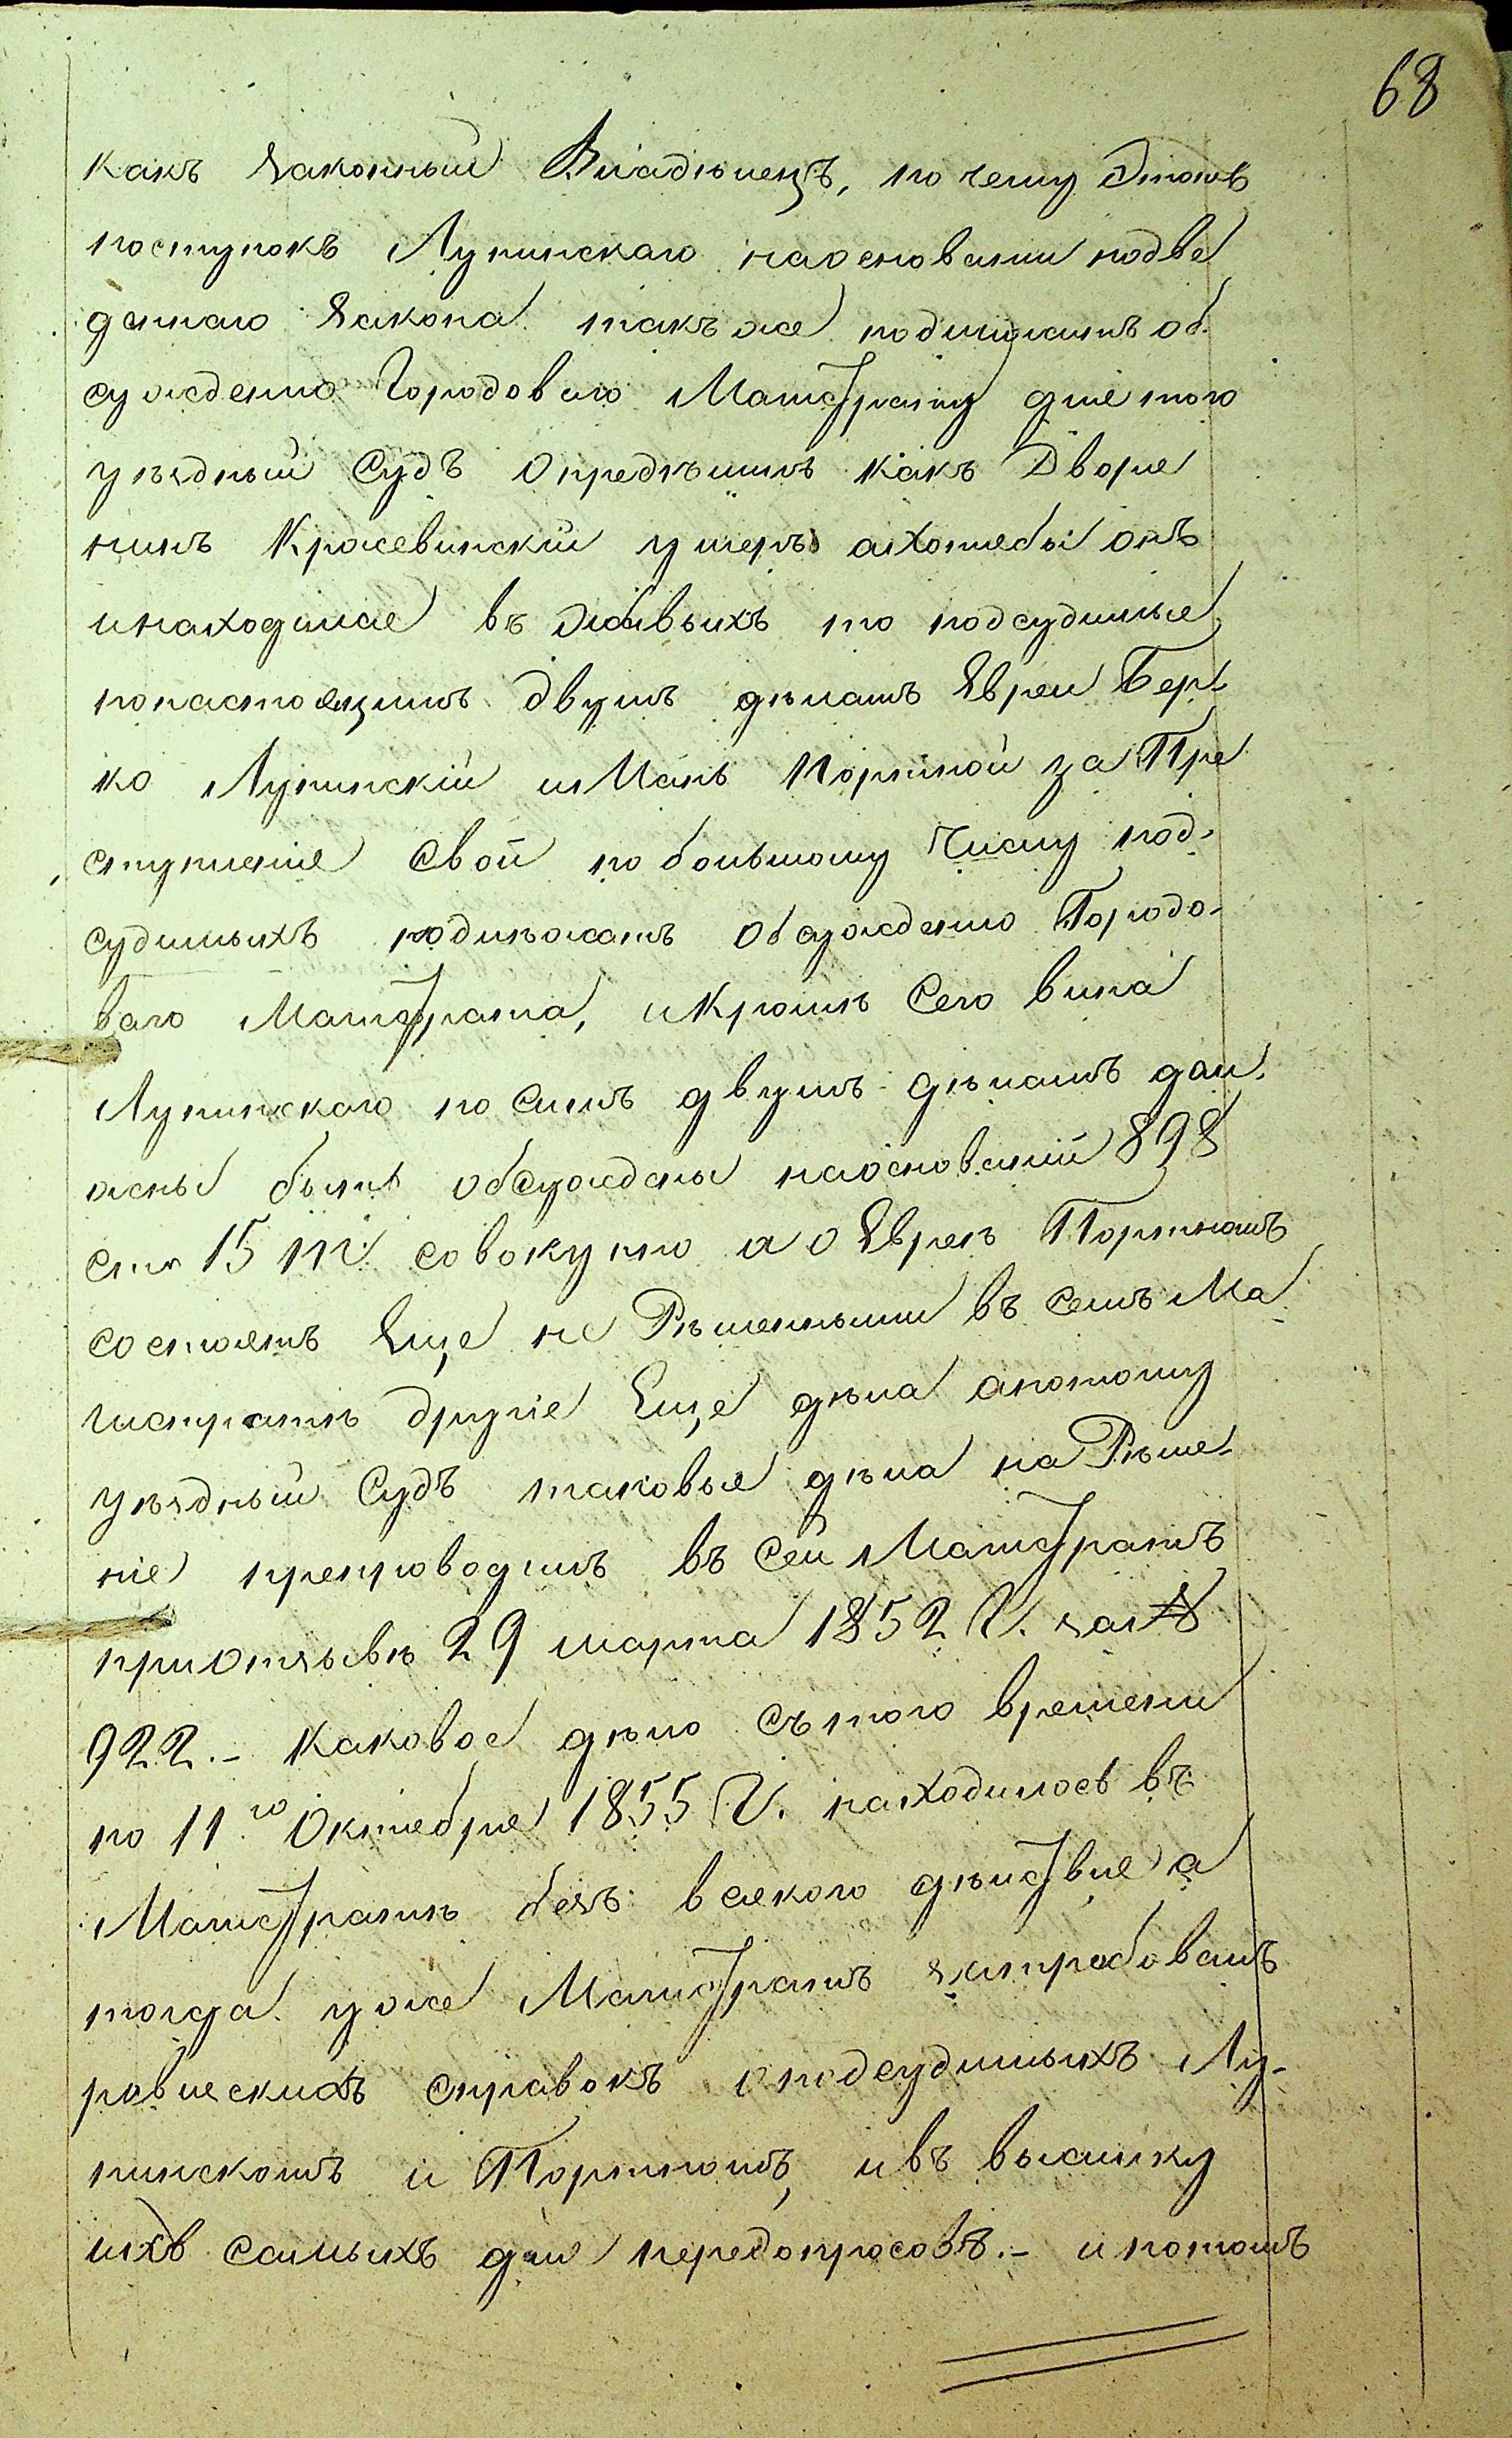 68
какъ законный Владѣлецъ, по чему Этотъ
поступокъ Лупинскаго наоснованіи подве
деннаго закона такъ же подлежитъ об-
сужденію Городоваго Магистрату для того
уѣздный Судъ опредѣлилъ какъ Дворя
нинъ Красевинскій умеръ ахотябы онъ
инаходился въ живыхъ то подсудимые
понастоящимъ двумъ дѣламъ Евреи Бер-
ко Лупинскій и Портной за Пре
ступленіе Свой по большому Числу под-
судимыхъ подлѣжатъ обсужденію Городо-
ваго Магистрата, и Кромѣ Сего вина
Лупинскаго по Симъ двумъ дѣламъ дол-
жны быть обсуждены наоснованіи 898
ст. 15 т. совокупно а о Евреѣ Портномъ
состоятъ Еще не Рѣшенными въ семъ Ма
гистратѣ другіе Еще дѣла апотому
уѣздный Судъ таковые дѣла на Рѣше-
ніе препроводилъ въ Сей Магистратъ
приотзывѣ 29 марта 1852 Г. за №
922.- Каковое дѣло Стого времени
по 11го Октебря 1855 Г. находилось въ
Магистратѣ безъ всякого дѣйствія а
тогда уже Магистратъ затребовалъ
справокъ оподсудимыхъ Лу-
пинскомъ и Портномъ, ивъ высылку
ихъ самыхъ для передопросовъ.- и потомъ